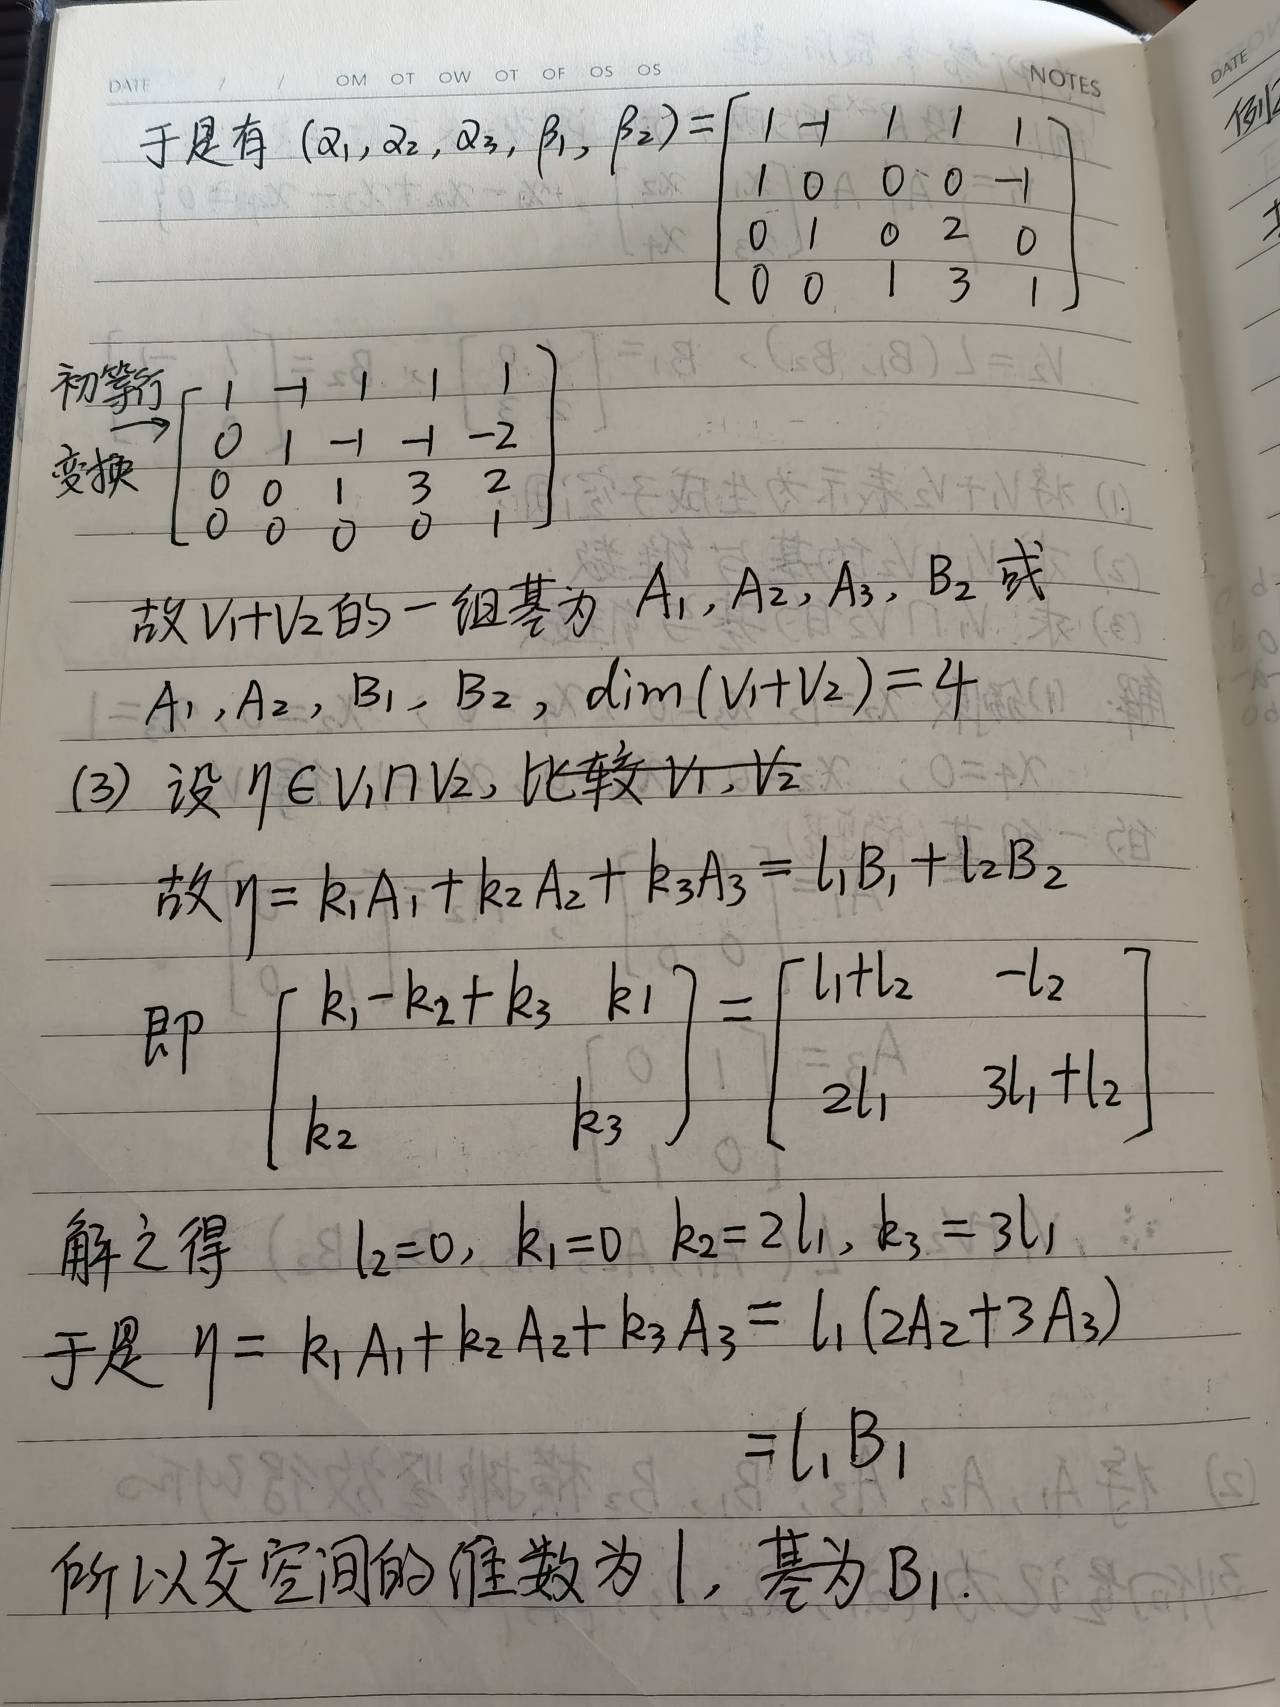 DATE / / OM OT OW OT OF OS OS NOTES
于是有 (α₁, α₂, α₃, β₁, β₂) = [1 -1 1 1 1
1 0 0 0 -1
0 1 0 2 0
0 0 1 3 1]
初等行变换 → [1 -1 1 1 1
0 1 -1 -1 -2
0 0 1 3 2
0 0 0 0 1]
故V₁+V₂的一组基为 A₁, A₂, A₃, B₂ 或
A₁, A₂, B₁, B₂, dim(V₁+V₂)=4
(3) 设 η∈V₁∩V₂, 比较V₁, V₂
故η = k₁A₁+k₂A₂+k₃A₃ = l₁B₁+l₂B₂
即 [k₁-k₂+k₃ k1
k₂ k₃] = [l₁+l₂ -l₂
2l₁ 3l₁+l₂]
解之得 l₂=0, k₁=0 k₂=2l₁, k₃=3l₁
于是 η = k₁A₁+k₂A₂+k₃A₃ = l₁(2A₂+3A₃)
=l₁B₁
所以交空间的维数为1, 基为B₁.
DATE